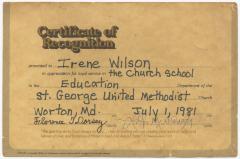 Certificate of
Recognition
presented to Irene Wilson
in appreciation for loyal service in the Church School
Education Department of the
St. George United Methodist Church
Worton, Md. July 1, 1981
Florence T. Dorsey